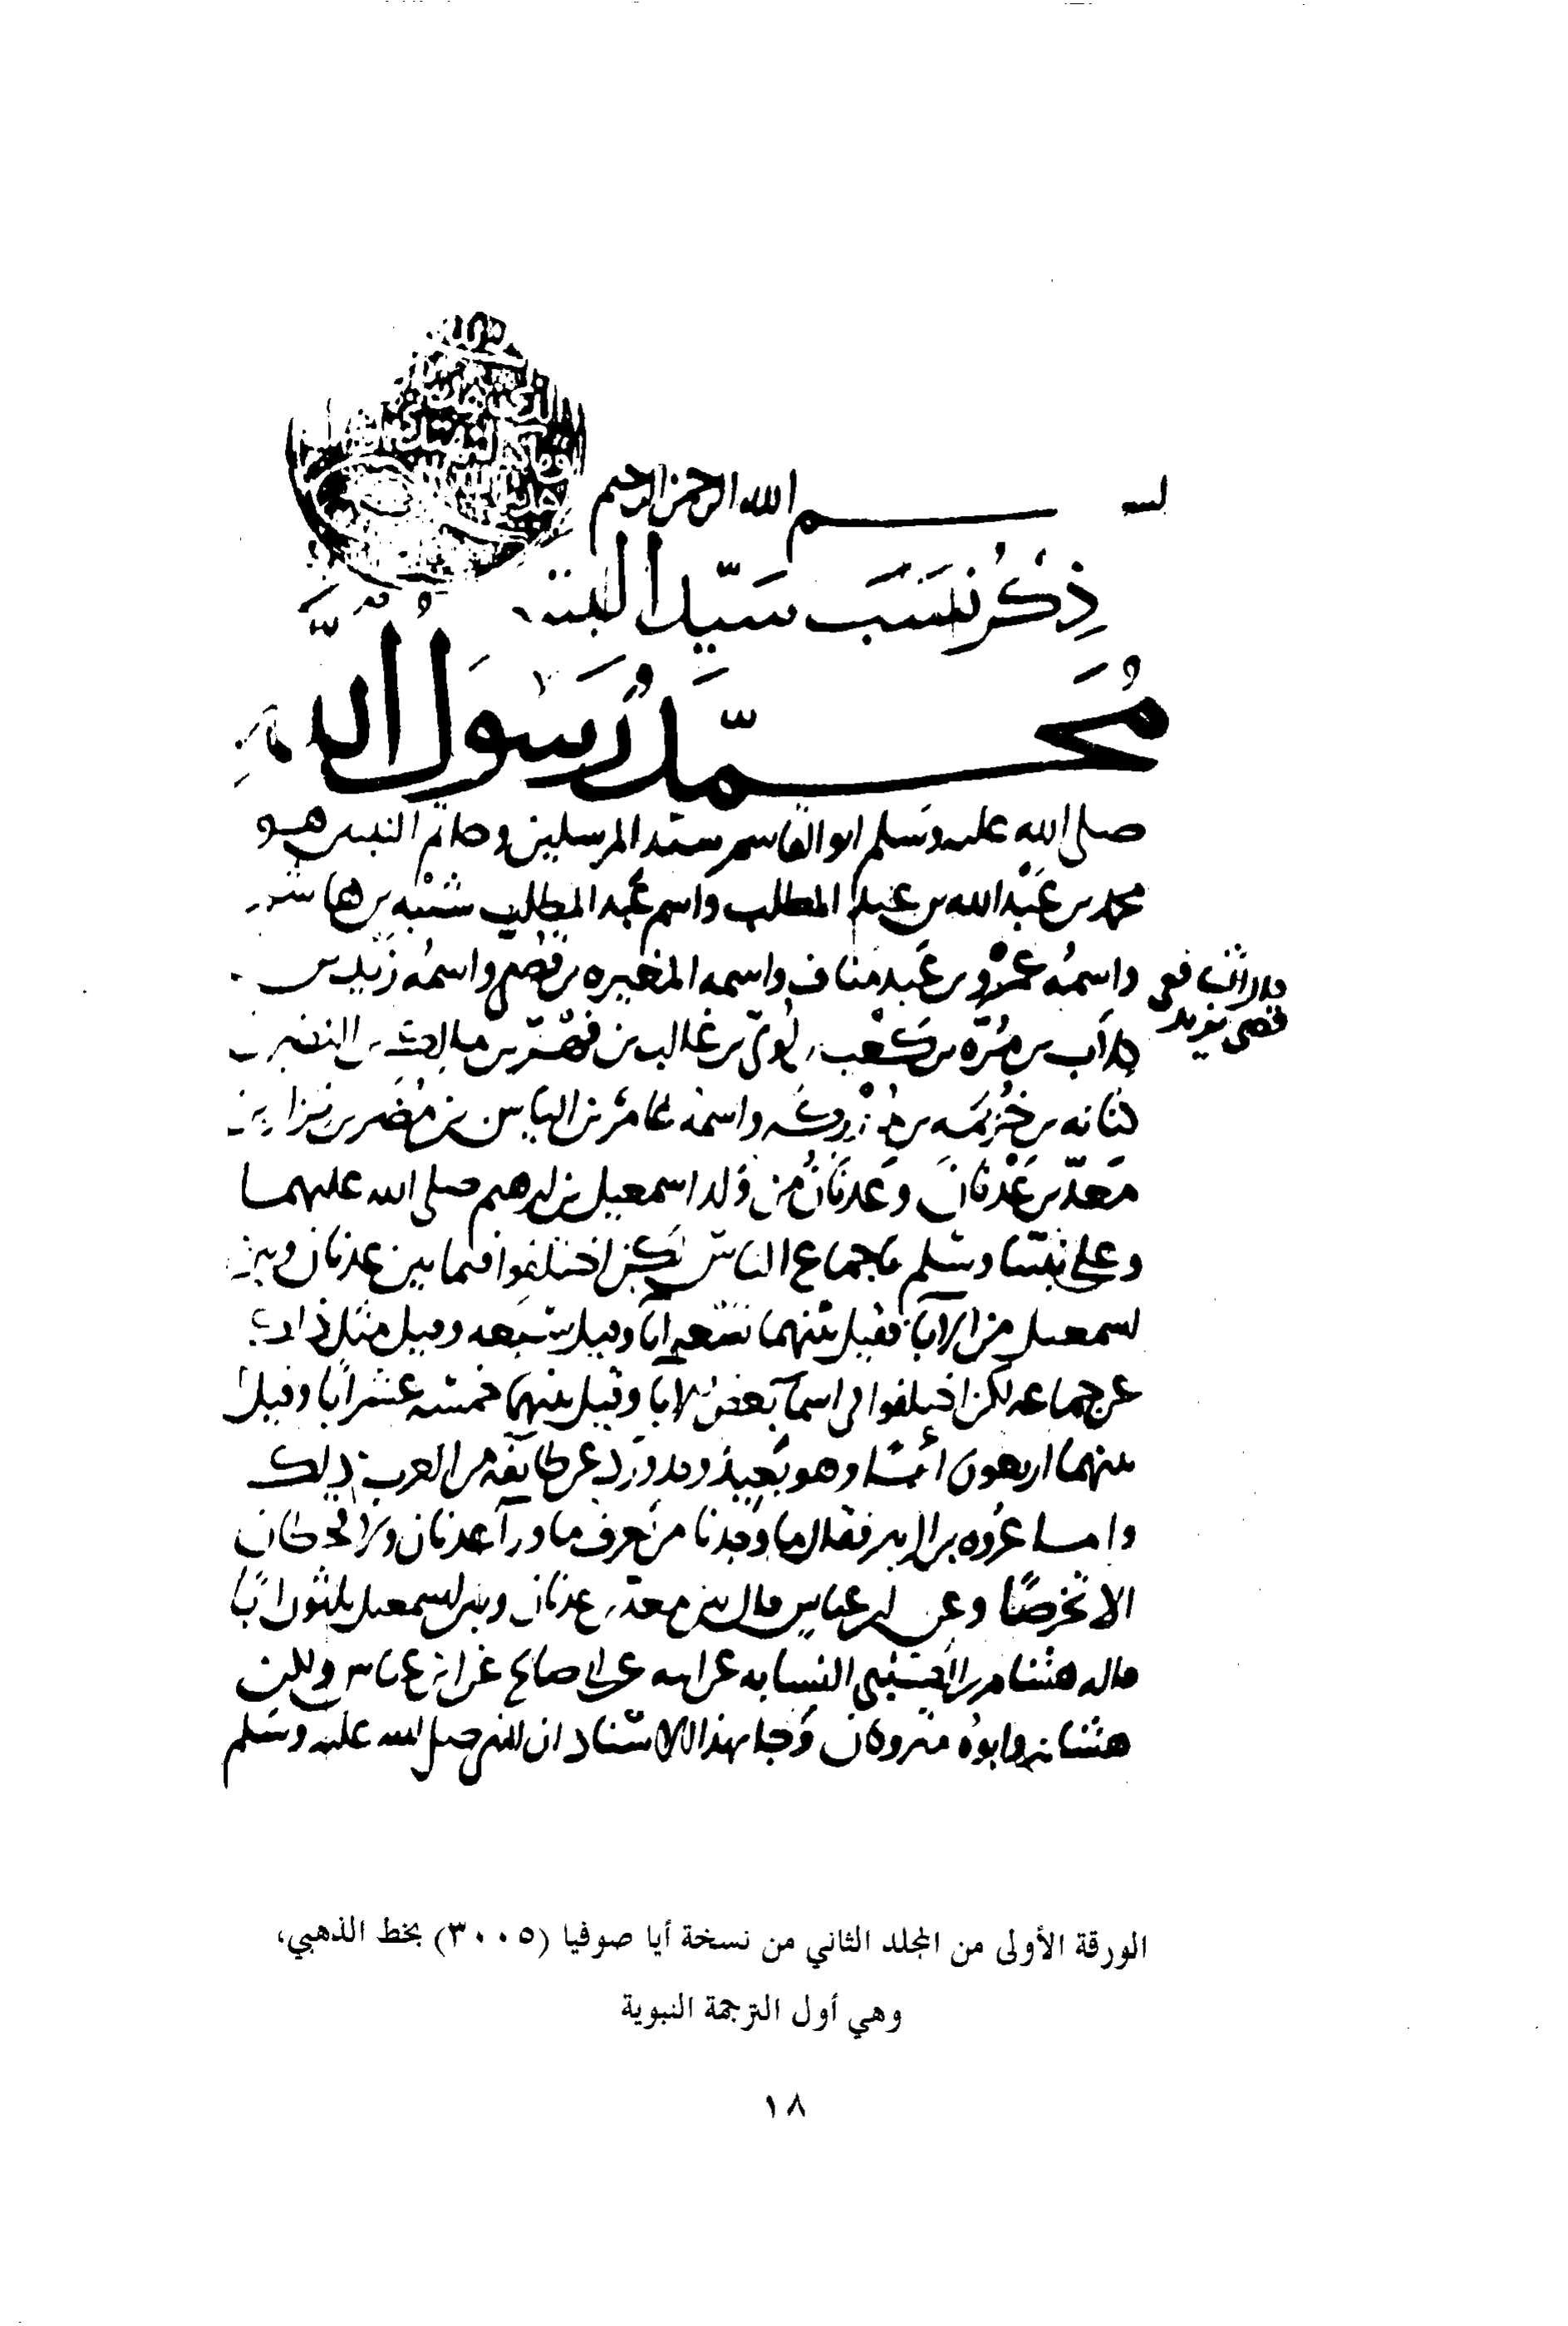 بسم الله الرحمن الرحيم
ذِكْرُ نَسَب سَيّد البشر
مُحَمَّد رَسُولُ اللَّه
صلى الله عليه وسلم ابو القاسم سيد المرسلين وخاتم النبيين هو
محمد بن عَبْد الله بن عبد المطلب واسم عَبد المطلب شَيْبَه بن هاشم
واسمُه عمرو بن عَبد مناف واسمه المغيره بن قُصي واسمُه زَيد بن
كلاب بن مُرّه بن كَعْب بن لُويّ بن غالب بن فِهْر بن مالك بن النضر بن
كنانه بن خُزيمَه بن مُدْرِكه واسمه عامر بن الياس بن مُضَر بن نزار بن
مَعَدّ بن عَدْنانَ وعَدنانُ من وَلد اسمعيل بن ابرهيم صلى الله عليهما
وعلى نبينا وسلم باجماع الناس لكن اختلفوا فيما بين عدنان وبين
اسمعيل من الاباء فقيل بينهما تسعه آبا وقيل سَبعه وقيل مثل ذلك
عن جماعه لكن اختلفوا في اسما بَعض الابا وقيل بينهما خمسه عشر ابًا وقيل
بينهما اربعون ابًا وهو بَعيد وقد وَرَد عن طايفه من العرب ذلك
واما عُروه بن الزبير فقال ما وَجدنا من يَعرف ما ورآ عدنان ولا قحطان
الا تخرصًا وعن ابن عباس قال بين معدّ بن عدنان وبين اسمعيل ثلثون ابًا
قاله هشام بن الكلبي النسابه عن ابيه عن ابي صالح عن ابن عباس ولكن
هشام وابوه متروكان وَجا بهذا الاسناد ان النبي صلى الله عليه وسلم
قصي يزيد
الورقة الأولى من المجلد الثاني من نسخة أيا صوفيا (٣٠٠٥) بخط الذهبي،
وهي أول الترجمة النبوية
١٨